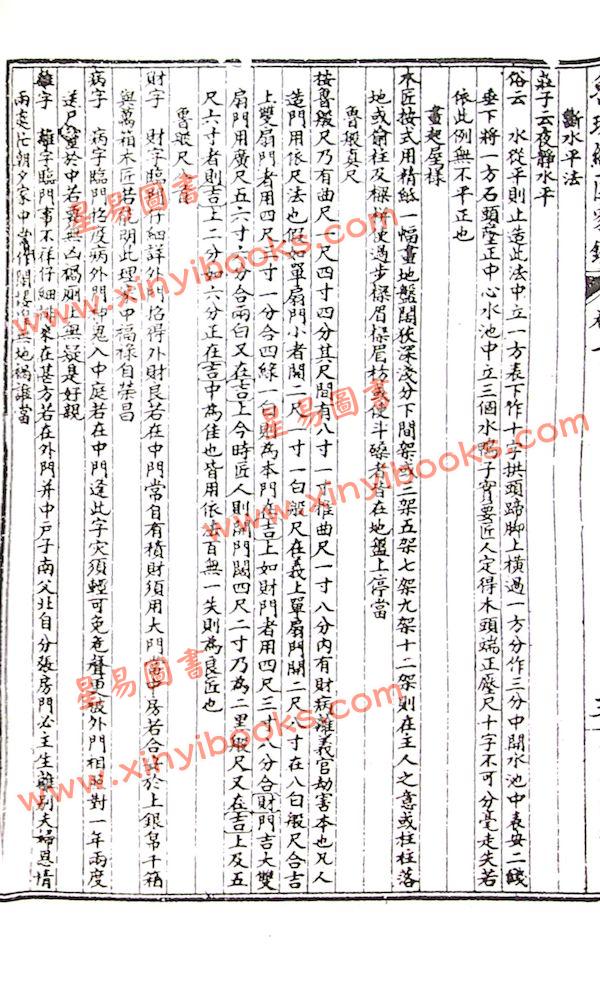 斷水平法
莊子云夜靜水平
俗云 水從平則止造此法中立一方表下作十字拱頭蹄脚上橫過一方分作三分中開水池中表安二線
垂下將一方石頭墜正中心水池中立三個水鴨子實要匠人定得木頭端正壓尺十字不可分毫走失若
依此例無不平正也
畫起屋樣
木匠按式用精紙一幅畫地盤闊狹深淺分下間架或三架五架七架九架十二架則在主人之意或柱柱落
地或偷柱及樑栟使過步樑眉樑眉枋或使斗磉者皆在地盤上停當
魯般真尺
按魯般尺乃有曲尺一尺四寸四分其尺間有八寸一寸准曲尺一寸八分內有財病離義官劫害本也凡人
造門用依尺法也假如單扇門小者開二尺一寸一白般尺在義上單扇門開二尺八寸在八白般尺合吉
上雙扇門者用四尺三寸一分合四綠一白則為本門在吉上如財門者用四尺三寸八分合財門吉大雙
扇門用廣尺五六寸六分合兩白又在吉上今時匠人則開門闊四尺二寸乃為二黑般尺又在吉上及五
尺六寸者則吉上二分加六分正在吉中為佳也皆用依法百無一失則為良匠也
魯般尺八首
財字 財字臨門仔細詳外門招得外財良若在中門常自有積財須用大門當中房若合此於上銀帛千箱
與萬箱木匠若能明此理家中福祿自榮昌
病字 病字臨門招疫病外門神鬼入中庭若在中門逢此字灾須輕可免危聲更被外門相照對一年兩度
送尸靈於中若要無凶禍廁上無疑是好親
離字 離字臨門事不祥仔細排來在甚方若在外門并中戶子南父北自分張房門必主生離別夫婦恩情
兩處忙朝夕家中當作鬧悽惶無地禍誰當
星易圖書
www.xinyibooks.com
星易圖書
www.xinyibooks.com
星易圖書
www.xinyibooks.com